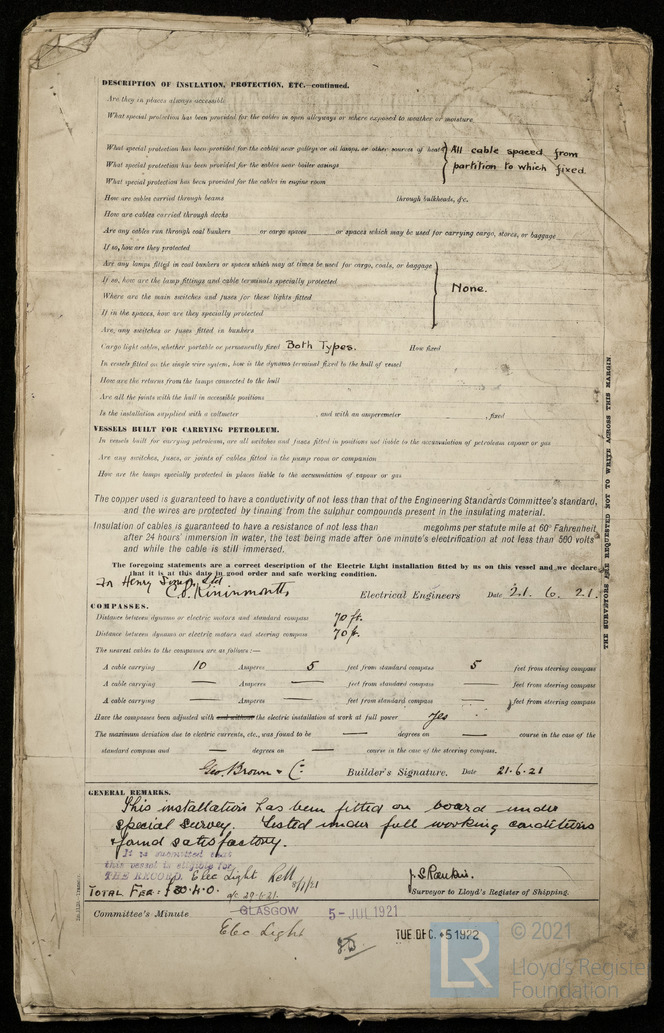 DESCRIPTION OF INSULATION, PROTECTION, ETC.—continued.
Are they in places always accessible
What special protection has been provided for the cables in open alleyways or where exposed to weather or moisture
What special protection has been provided for the cables near galleys or oil lamps, or other sources of heat
All cable spaced from
What special protection has been provided for the cables near boiler casings
partition to which fixed
What special protection has been provided for the cables in engine room
How are cables carried through beams through bulkheads, &c.
How are cables carried through decks
Are any cables run through coal bunkers or cargo spaces or spaces which may be used for carrying cargo, stores, or baggage
If so, how are they protected
Are any lamps fitted in coal bunkers or spaces which may at times be used for cargo, coals, or baggage
If so, how are the lamp fittings and cable terminals specially protected
None.
Where are the main switches and fuses for these lights fitted
If in the spaces, how are they specially protected
Are any switches or fuses fitted in bunkers
Cargo light cables, whether portable or permanently fixed Both Types. How fixed
In vessels fitted on the single wire system, how is the dynamo terminal fixed to the hull of vessel
How are the returns from the lamps connected to the hull
Are all the joints with the hull in accessible positions
Is the installation supplied with a voltmeter , and with an amperemeter , fixed
VESSELS BUILT FOR CARRYING PETROLEUM.
In vessels built for carrying petroleum, are all switches and fuses fitted in positions not liable to the accumulation of petroleum vapour or gas
Are any switches, fuses, or joints of cables fitted in the pump room or companion
How are the lamps specially protected in places liable to the accumulation of vapour or gas
The copper used is guaranteed to have a conductivity of not less than that of the Engineering Standards Committee's standard,
and the wires are protected by tinning from the sulphur compounds present in the insulating material.
Insulation of cables is guaranteed to have a resistance of not less than megohms per statute mile at 60° Fahrenheit
after 24 hours' immersion in water, the test being made after one minute's electrification at not less than 500 volts
and while the cable is still immersed.
The foregoing statements are a correct description of the Electric Light installation fitted by us on this vessel and we declare
that it is at this date in good order and safe working condition.
Henry Ltd
C.O. Kininmonth Electrical Engineers Date 21. 6. 21.
COMPASSES.
Distance between dynamo or electric motors and standard compass 70 ft.
Distance between dynamo or electric motors and steering compass 70 ft.
The nearest cables to the compasses are as follows:—
A cable carrying 10 Amperes 5 feet from standard compass 5 feet from steering compass
A cable carrying — Amperes — feet from standard compass — feet from steering compass
A cable carrying — Amperes — feet from standard compass — feet from steering compass
Have the compasses been adjusted with and without the electric installation at work at full power Yes
The maximum deviation due to electric currents, etc., was found to be — degrees on — course in the case of the
standard compass and — degrees on — course in the case of the steering compass.
Geo. Brown & Co. Builder's Signature. Date 21.6.21
GENERAL REMARKS.
This installation has been fitted on board under
special survey. Tested under full working conditions
& found satisfactory.
It is submitted that
this vessel is eligible for
THE RECORD. Elec Light
J. S. Rankin.
TOTAL FEE: £
Surveyor to Lloyd's Register of Shipping.
Committee's Minute GLASGOW 5-JUL 1921
Elec Light
TUE. DEC. 5 1922
THE SURVEYORS ARE REQUESTED NOT TO WRITE ACROSS THIS MARGIN
LR
© 2021
Lloyd's Register
Foundation